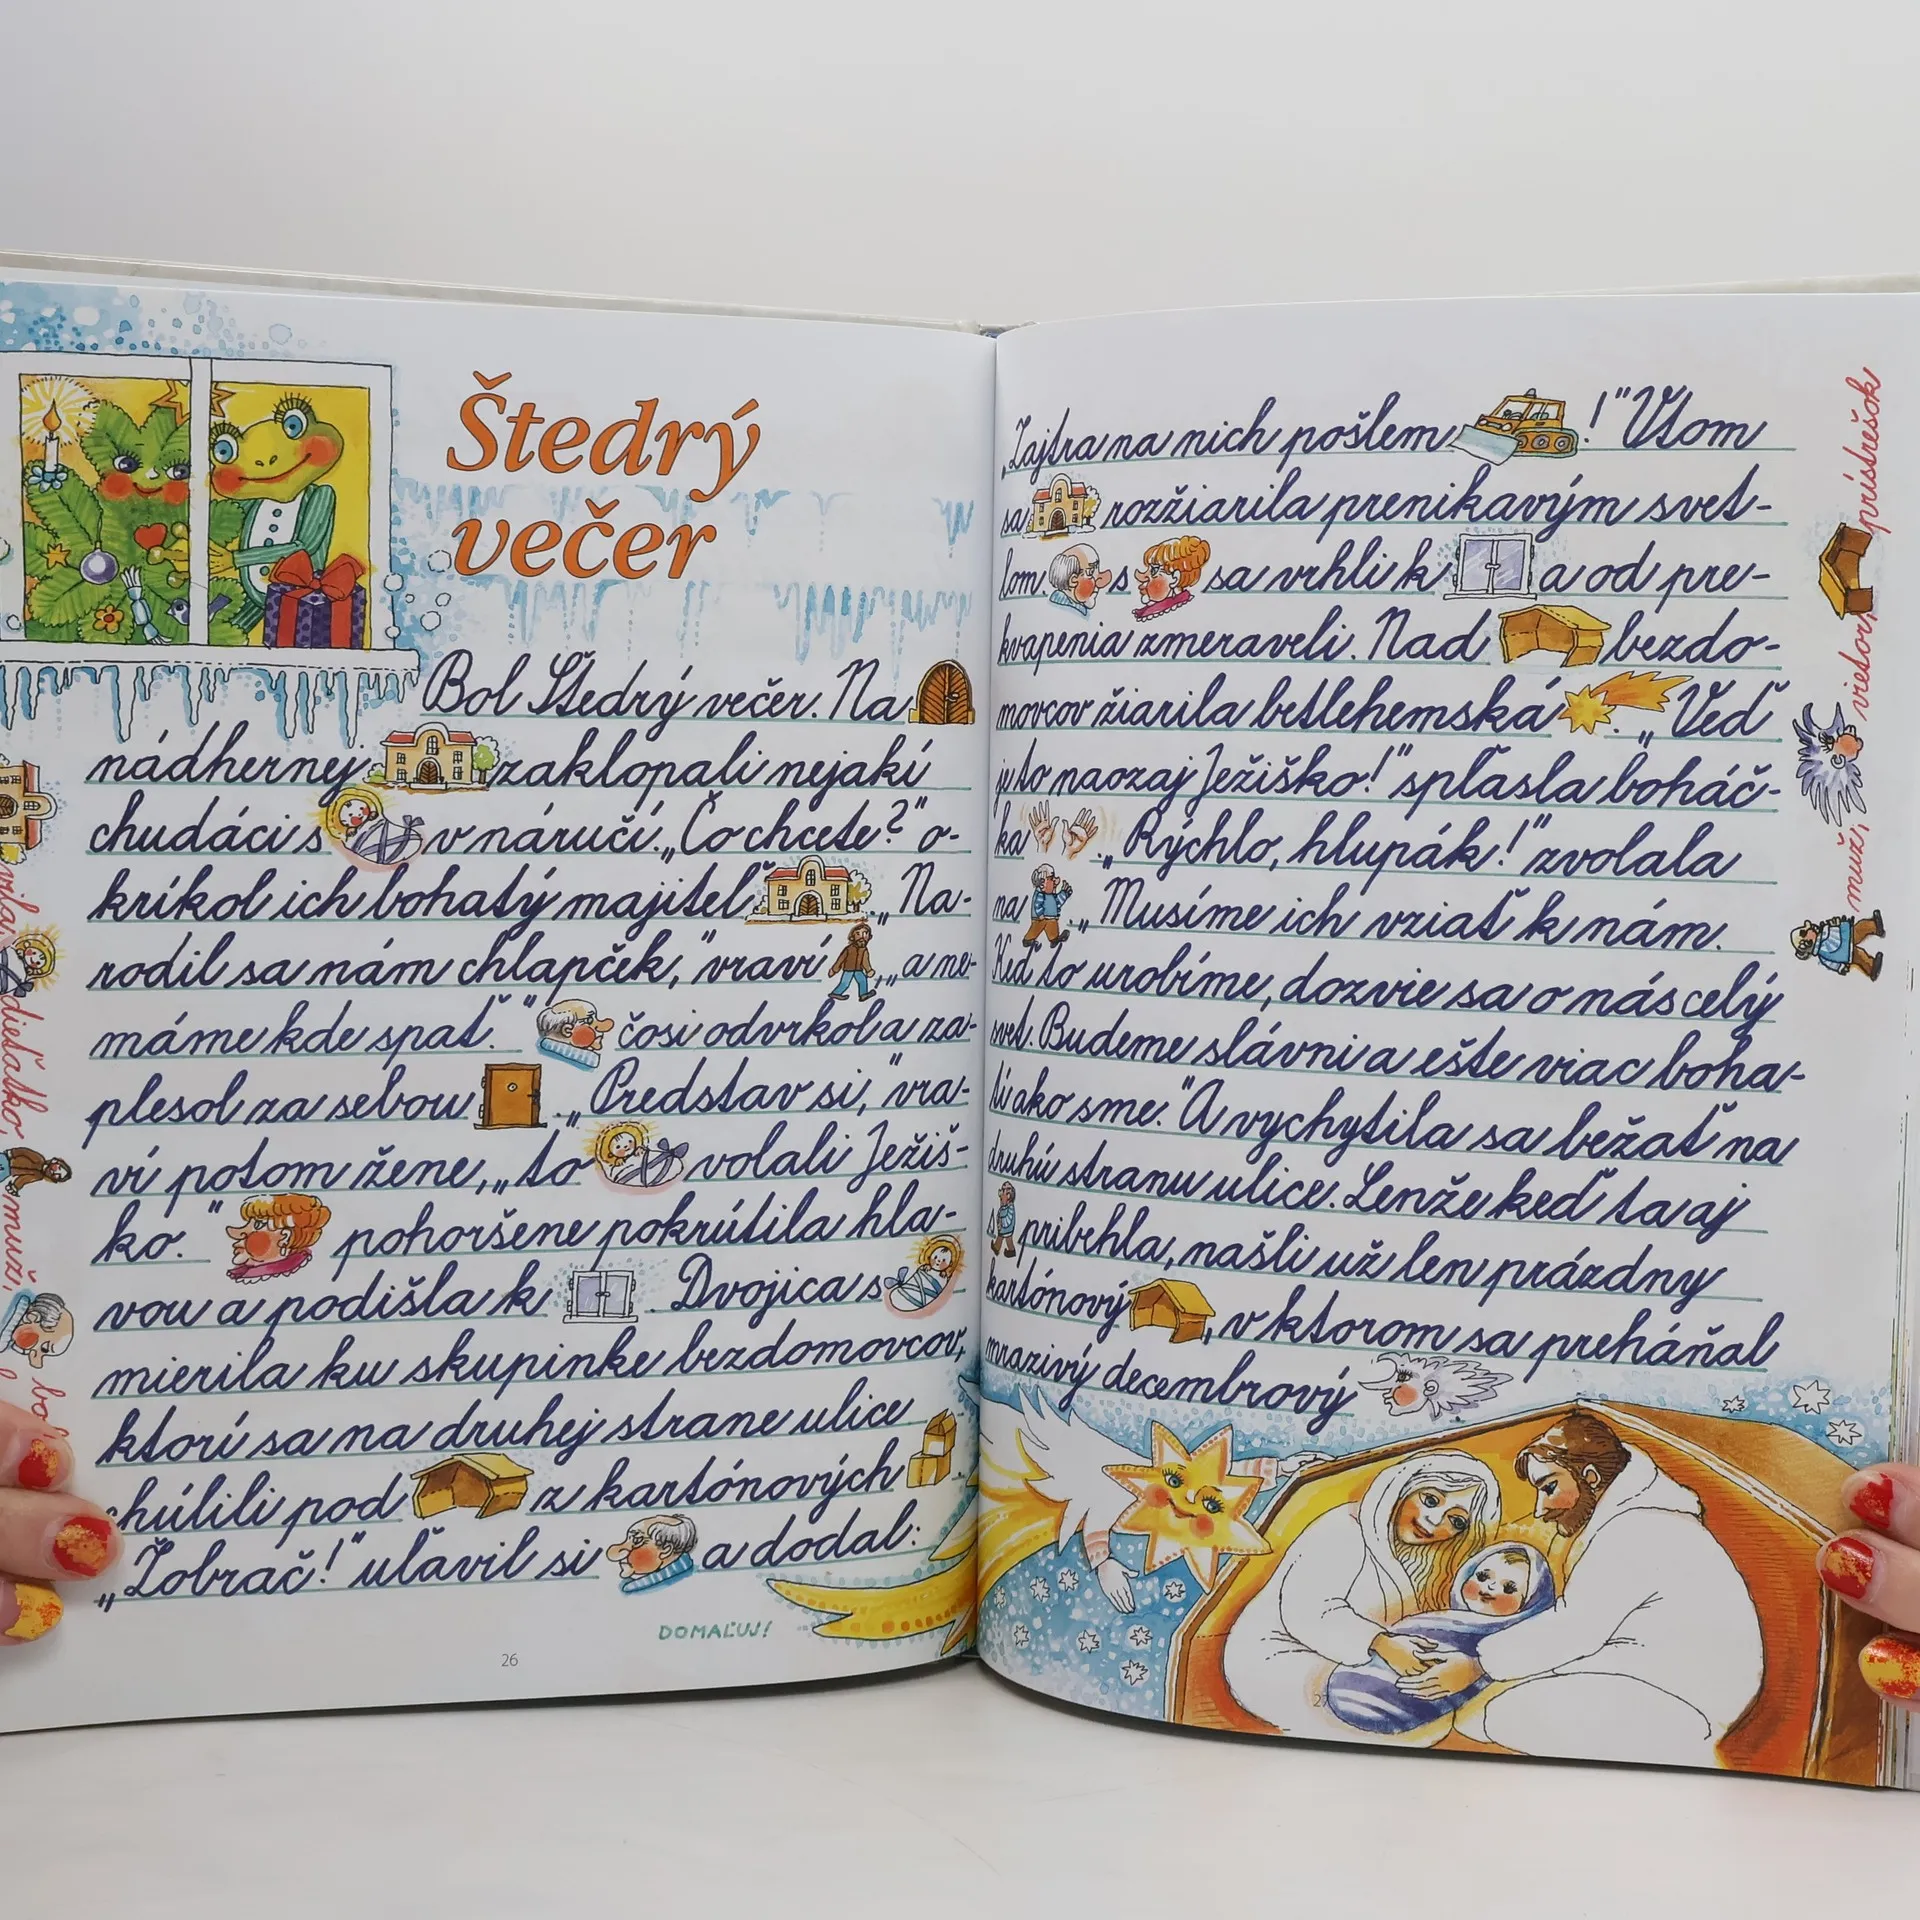 Štedrý
večer
Bol Štedrý večer. Na
nádhernej zaklopali nejakí
chudáci s v náručí. „Čo chcete?" o-
kríkol ich bohatý majiteľ . „Na-
rodil sa nám chlapček," vraví , „a ne-
máme kde spať." čosi odvrkol a za-
plesol za sebou . „Predstav si," vra-
ví potom žene, „to volali Ježiš-
ko." pohoršene pokrútila hla-
vou a podišla k . Dvojica s
mierila ku skupinke bezdomovcov,
ktorí sa na druhej strane ulice
chúlili pod z kartónových .
„Žobrač!" uľavil si a dodal:
DOMAĽUJ!
26
vila,
dieťatko,
muž,
„Zajtra na nich pošlem !" Vtom
sa rozžiarila prenikavým svet-
lom. s sa vrhli k a od pre-
kvapenia zmeraveli. Nad bezdo-
movcov žiarila betlehemská . „Veď
je to naozaj Ježiško!" spľasla boháč-
ka . „Rýchlo, hlupák!" zvolala
na . „Musíme ich vziať k nám.
Keď to urobíme, dozvie sa o nás celý
svet. Budeme slávni a ešte viac boha-
tí ako sme." A vychytila sa bežať na
druhú stranu ulice. Lenže keď ta aj
s pribehla, našli už len prázdny
kartónový , v ktorom sa preháňal
mrazivý decembrový
27
muž,
vietor,
prístrešok